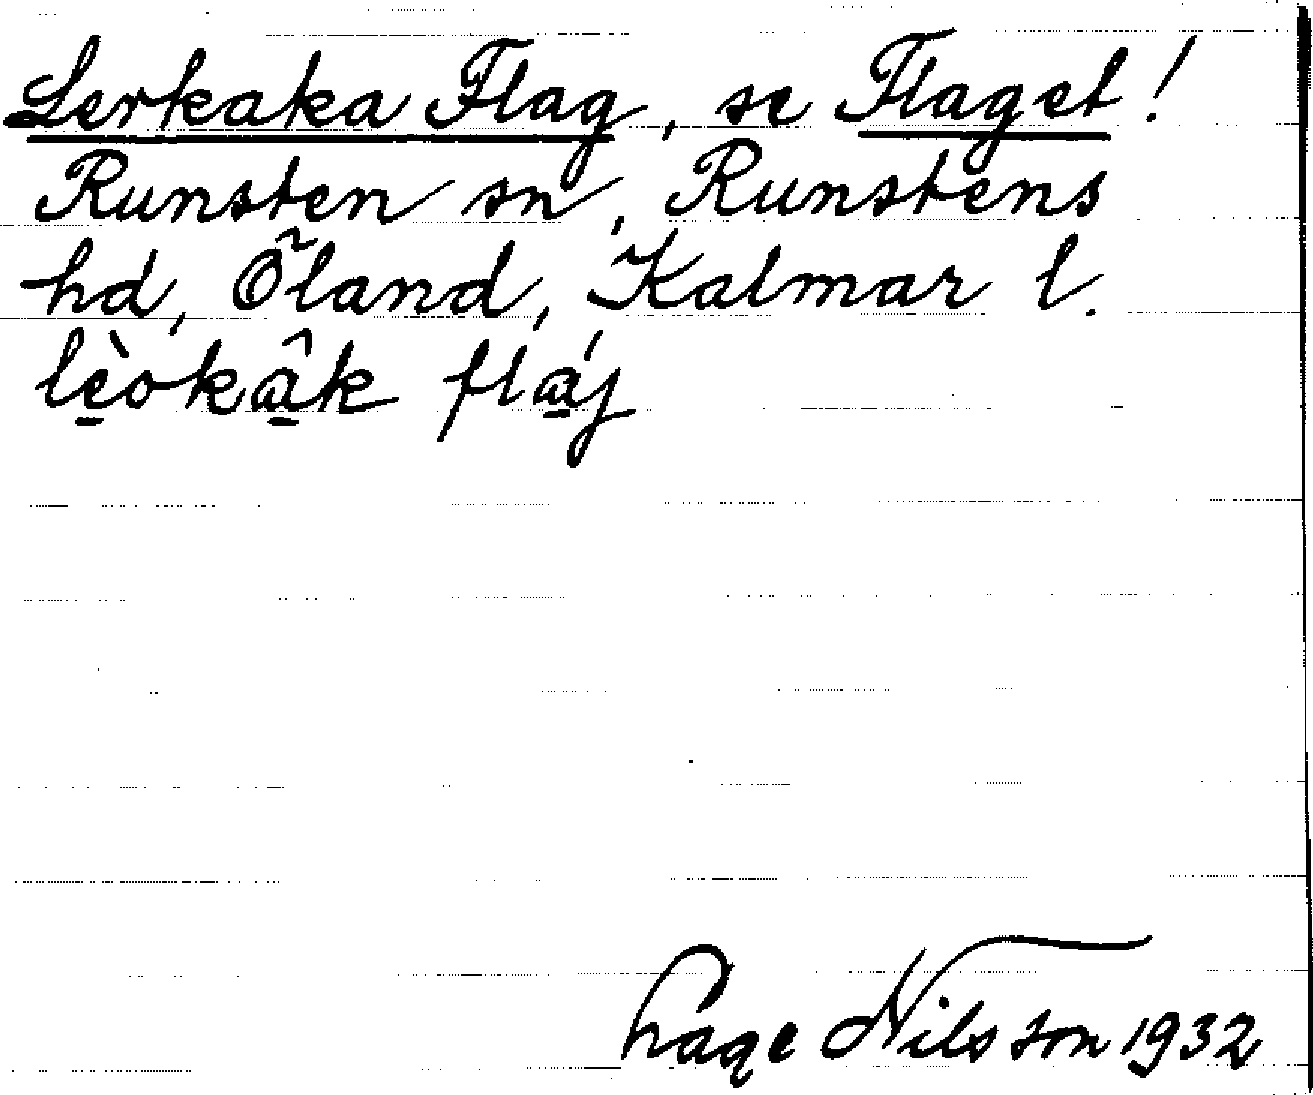 Lerkaka Flag, se Flaget!
Runsten sn, Runstens
hd, Öland, Kalmar l.
Nilsson 1932